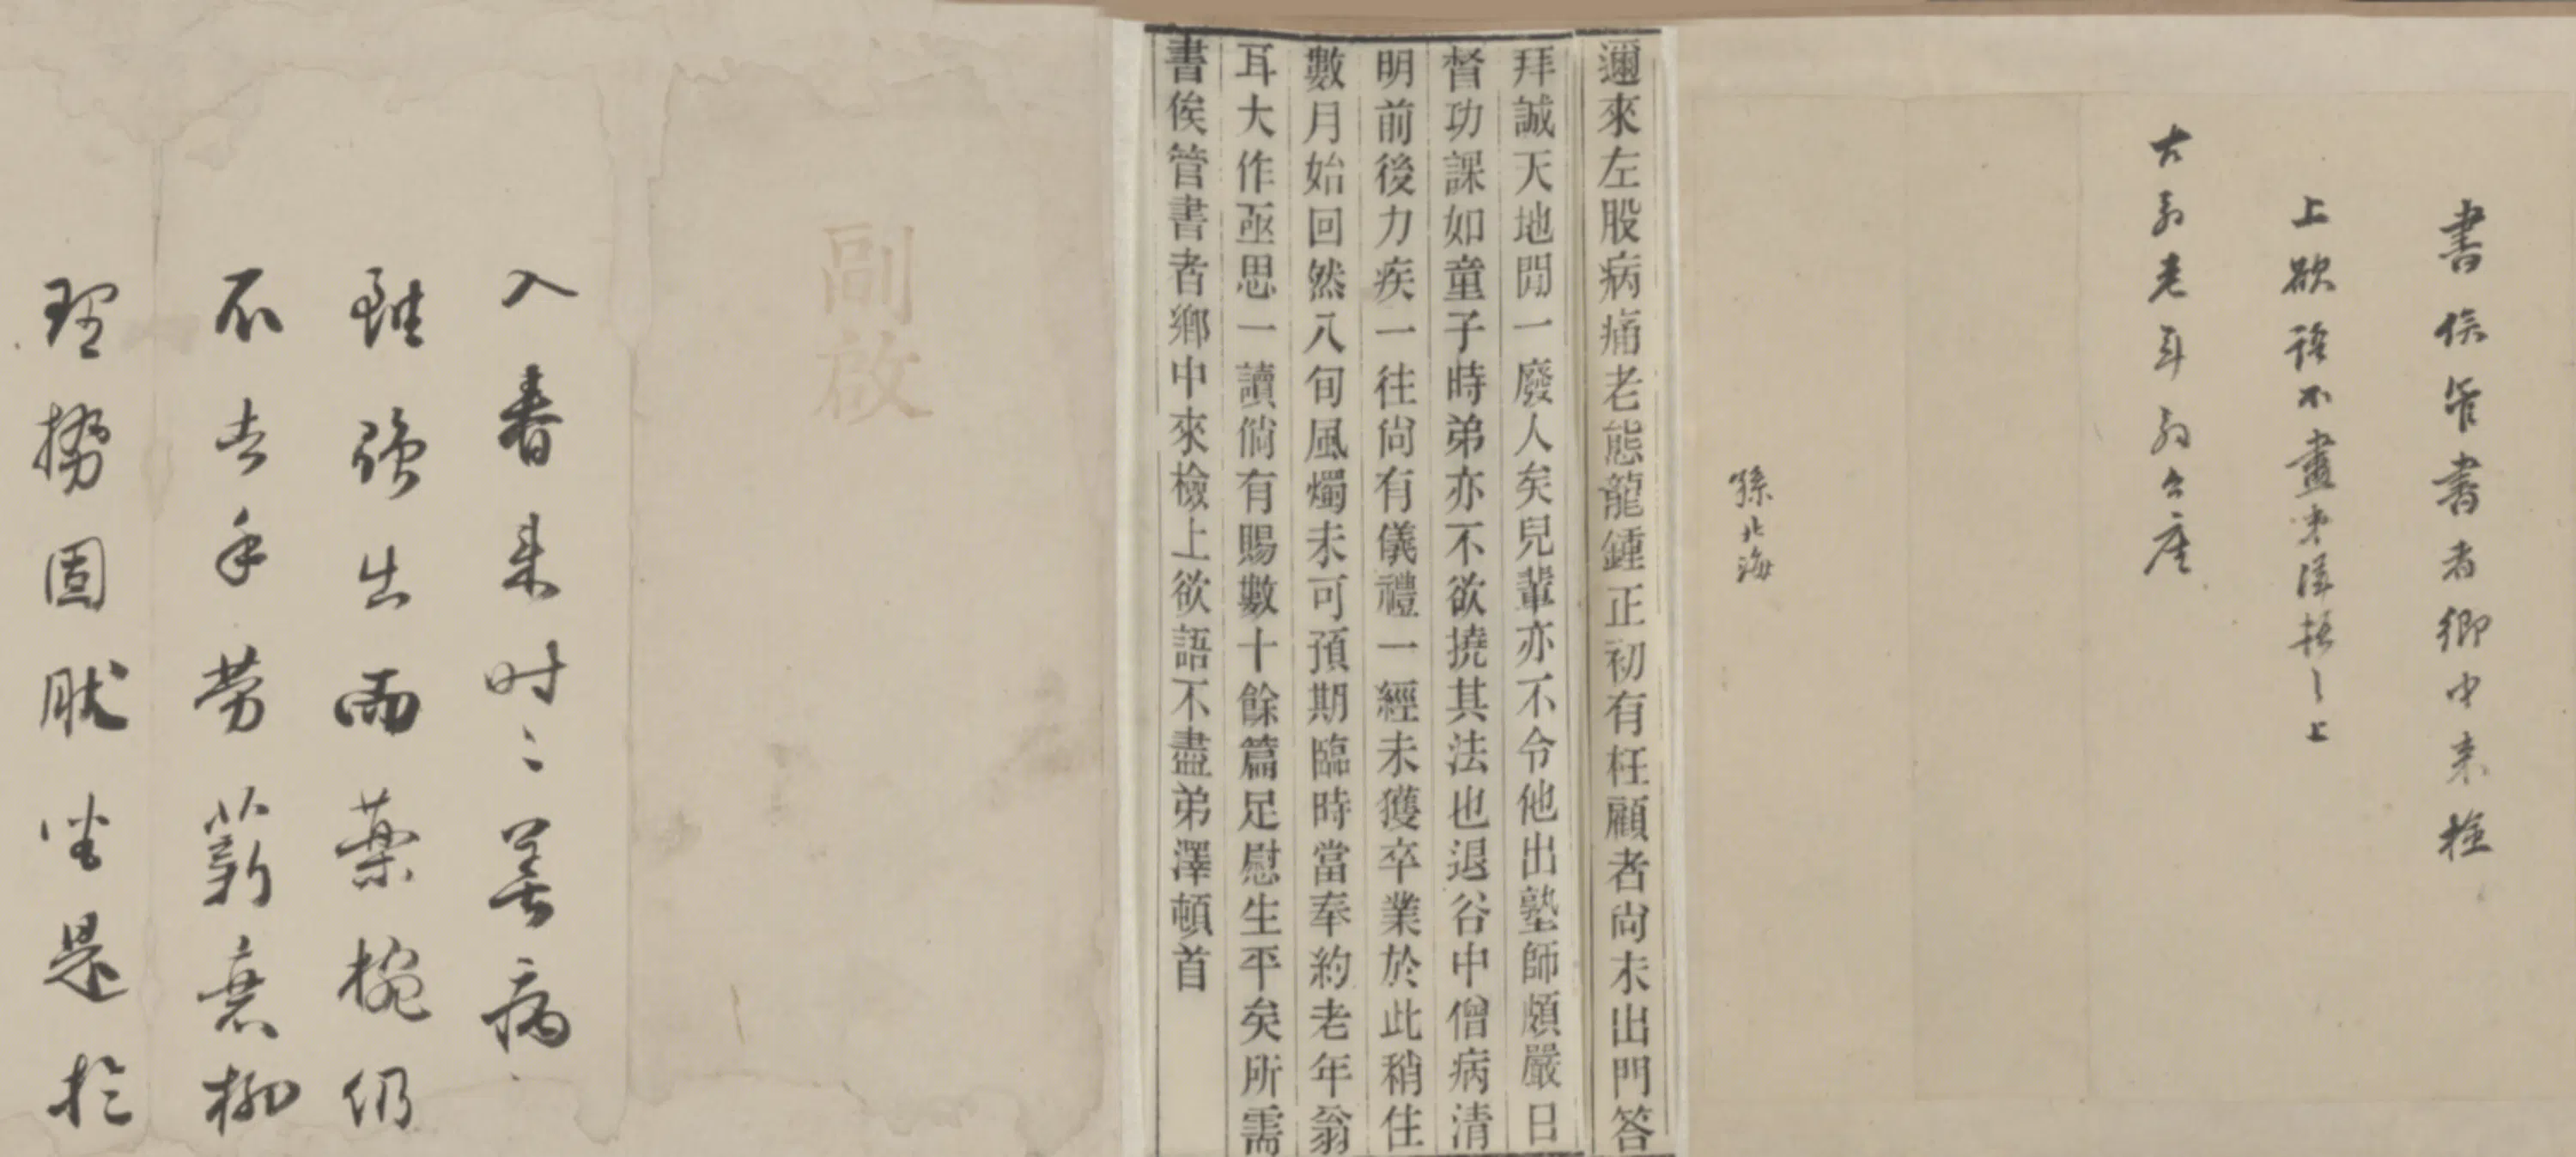 書俟管書者鄉中来檢
上欲語不盡弟澤頓首上
老年翁台座
孫北海
邇來左股病痛老態龍鍾正初有枉顧者尚未出門答
拜誠天地閒一廢人矣兒輩亦不令他出塾師頗嚴日
督功課如童子時弟亦不欲撓其法也退谷中僧病清
明前後力疾一往尚有儀禮一經未獲卒業於此稍住
數月始回然八旬風燭未可預期臨時當奉約老年翁
耳大作亟思一讀倘有賜數十餘篇足慰生平矣所需
書俟管書者鄉中來檢上欲語不盡弟澤頓首
副啟
入春来时〻善病
雖强出而藥椀仍
不去手勞薪衰柳
理勢固然坐是於